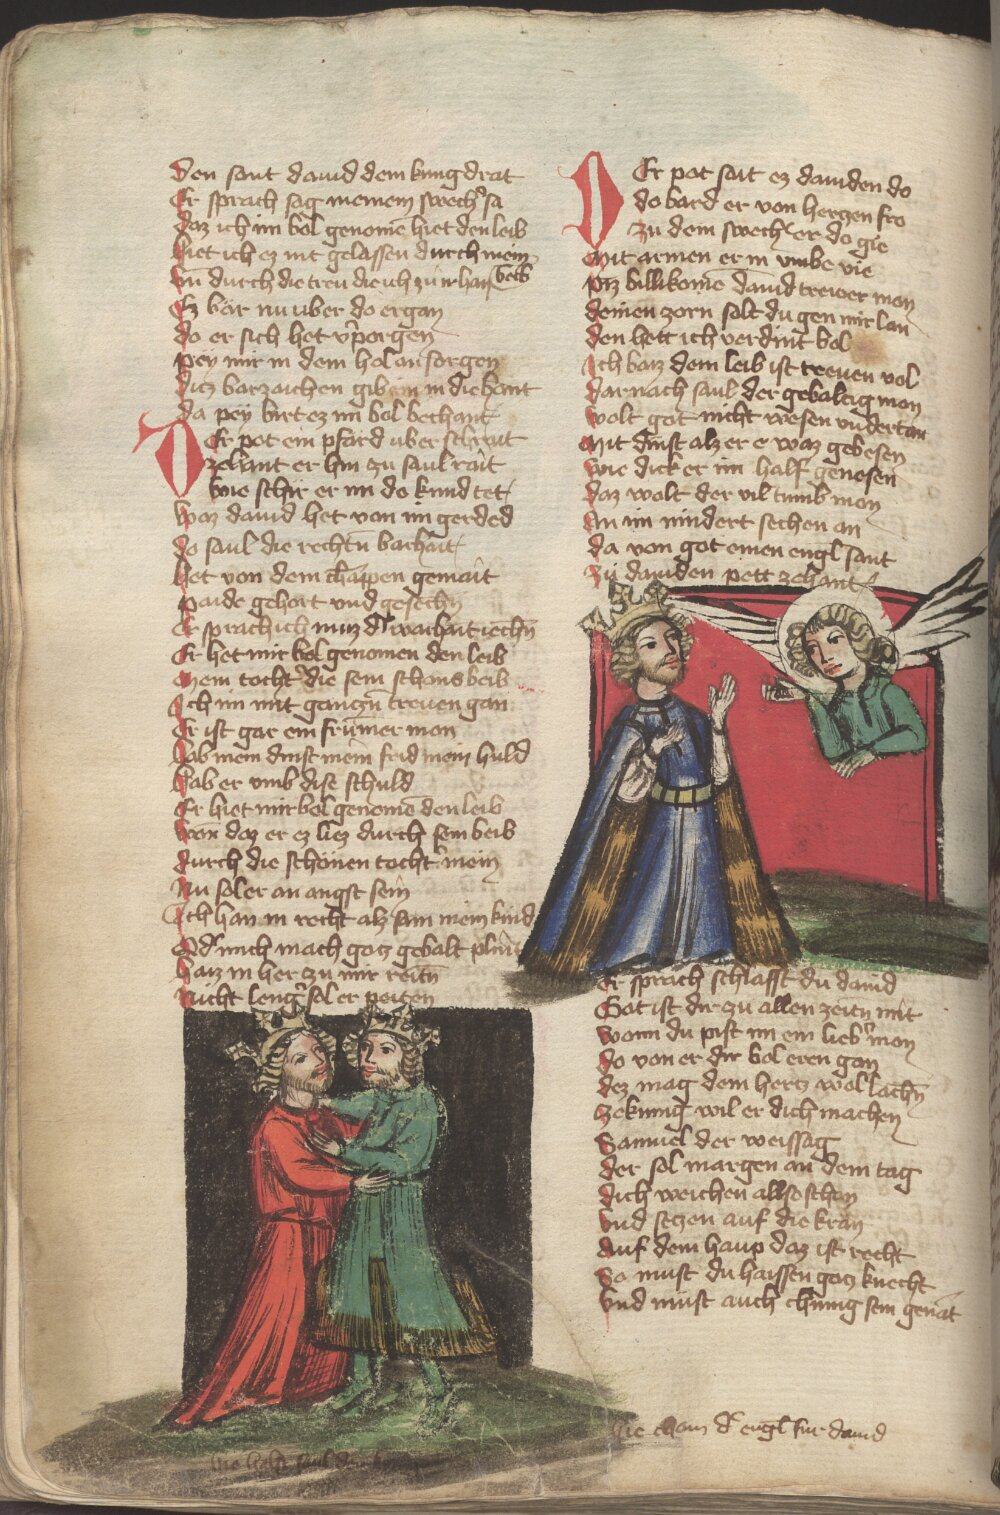 den sant dauid dem kung drat
Er sprach sag meinem swech sa
daz ich im bol genomē hiet den leib
hiet ich ez nit gelassen durch mein
beib
vn durch die treu die ich zu ir han
Ez bär nu uber do ergan
do er sich het vporgen
pey mir in dem hol an sorgen
diz barzaichen gib im in die hant
da pey birt ez im bol bechant
Der pot ein pfärd uber schreit
zehant er hin zu saul rait
wie schir er im do kund tet
waz dauid het von im gered
do saul die rechtn barhait
het von dem chāppen gemait
paide gehort und gesechn
Er sprach ich muz dr warhait iechn
Er het mir bol genomen den leib
mein tocht die sein schons beib
Ich im mit ganczn treuen gan
Er ist gar ein frumer mon
hab mein dinst mein frid mein huld
hab er vmb dise schuld
Er hiet mir bol genomē den leib
won daz er ez liez durch sein beib
durch die schonen tocht mein
Nu sol er an angst sein
Ich han in recht alz sam mein kind
Odr mich mach gotz gebalt plint
haiz in her zu mir reitn
nicht leng sol er peiten
Der pot sait ez dauiden do
do bard er von herzen fro
zu dem swech er do gie
mit armen er in vmbe vie
piz billikomē dauid treuer mon
deinen zorn solt du gen mir lan
den hett ich verdint bol
Ich baiz dem leib ist treuen vol
Darnach saul der gebaltig mon
wolt got nicht wesen vndertan
mit dinst alz er e waz gebesen
wie dick er im half genesen
daz wolt der vil tumb mon
an im nindert sechen an
da von got einen engl sant
zu dauiden pett zehant
Er sprach schlaffst du dauid
Got ist dir zu allen zeitn mit
wann du pist im ein lieb mon
do von er dir bol eren gan
dez mag dem hertz wol lachn
ze kunig wil er dich machen
Samuel der weissag
der sol margen an dem tag
dich weichen allso schon
vnd setzen auf die kron
auf dem haup daz ist recht
So must du haissen gotz knecht
vnd must auch chunig sein genāt
hie chom dr engl fur dauid